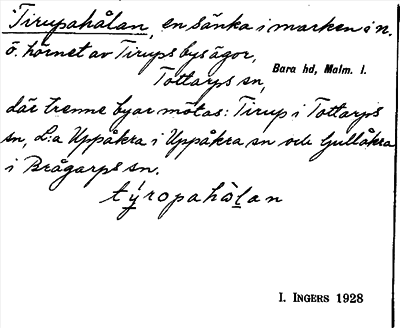 Tirupahålan, en sänka i marken i n.
ö. hörnet av Tirups bys ägor,
Tottarps sn, Bara hd, Malm. l.
där trenne byar mötas: Tirup i Tottarps
sn, L:a Uppåkra i Uppåkra sn och Gullåkra
i Brågarps sn.
týropahòlan
I. INGERS 1928